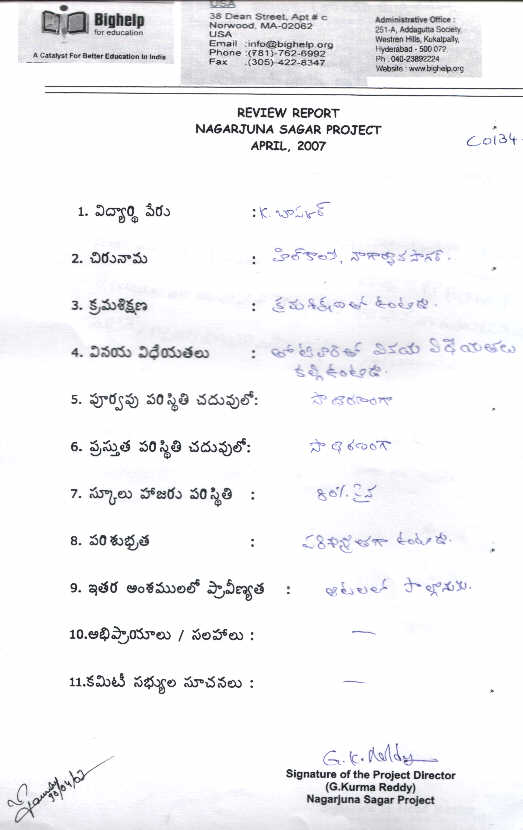 Bighelp
for education
A Catalyst For Better Education In India
USA
38 Dean Street, Apt # c
Norwood, MA-02062
USA
Email :info@bighelp.org
Phone :(781)-762-6992
Fax :.(305)-422-8347
Administrative Office :
251-A, Addagutta Society,
Westren Hills, Kukatpally,
Hyderabad - 500 072
Ph : 040-23892224
Website : www.bighelp.org
REVIEW REPORT
NAGARJUNA SAGAR PROJECT
APRIL, 2007
C0134
1. విద్యార్థి పేరు : K.
2. చిరునామ : హిల్ కాలనీ, నాగార్జున సాగర్.
3. క్రమశిక్షణ : క్రమశిక్షణతో ఉంటాడు.
4. వినయ విధేయతలు : తోటివారితో వినయ విధేయతలు
కల్గి ఉంటాడు.
5. పూర్వపు పరిస్థితి చదువులో: సాధారణంగా
6. ప్రస్తుత పరిస్థితి చదువులో: సాధారణంగా
7. స్కూలు హాజరు పరిస్థితి : 80% పైన
8. పరిశుభ్రత : పరిశుభ్రతగా ఉంటాడు.
9. ఇతర అంశములలో ప్రావీణ్యత : ఆటలలో పాల్గొనును.
10.అభిప్రాయాలు / సలహాలు : —
11.కమిటీ సభ్యుల సూచనలు : —
30/04/07
G.K.Reddy
Signature of the Project Director
(G.Kurma Reddy)
Nagarjuna Sagar Project